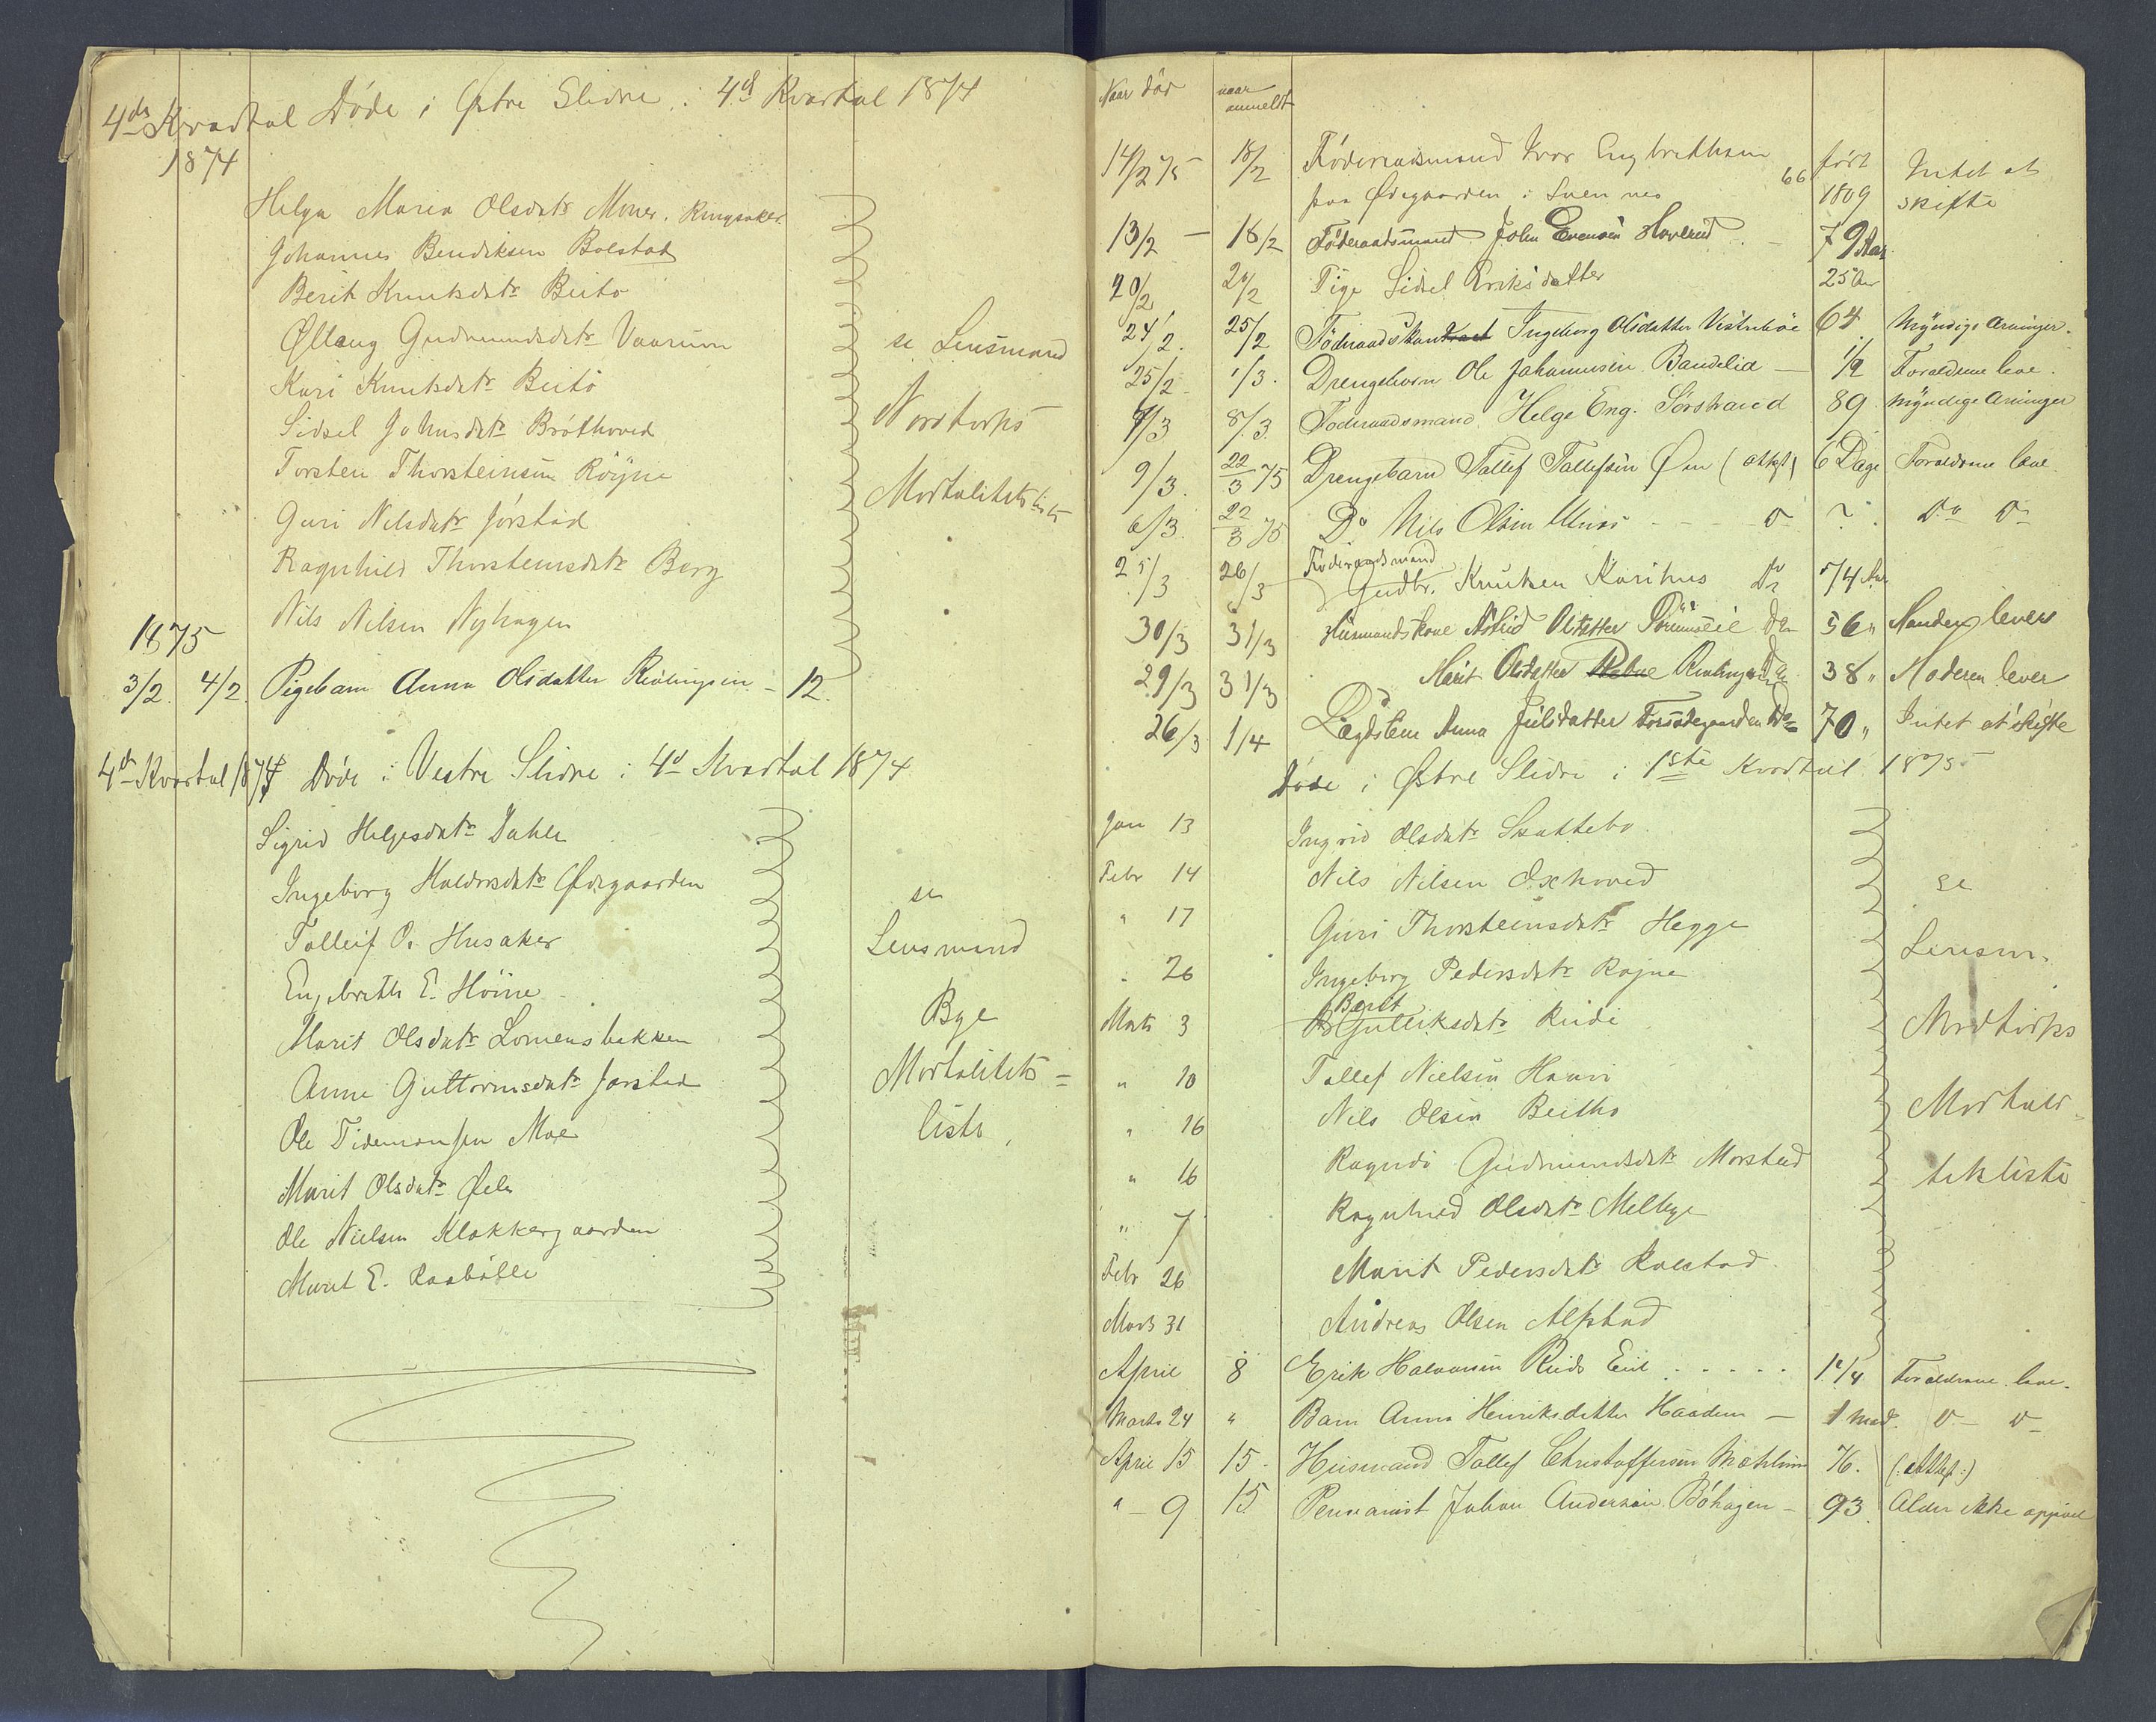 4de Kvartal Døde i Østre Slidre i 4d Kvartal 1874
1874
Helga Maria Olsdatr Moner. Ringsaker
Johannes Bendiksen Bolstad
Berit Knutsdatr Beito
Øllaug Gudmundsdatr
Kari Knutsdatr Beito
Sidsel Johnsdatr Bröthoved
Torsten Thorsteinsen Röyne
Guri Nilsdatr Jörstad
Ragnhild Thorsteinsdatr Berg
Nils Nilsen Nyhagen
se Lensmand
Nordtorps
Mortalitetsliste
1875
3/2. 4/2. Pigebarn Anna Olsdatter - 12.
4de Kvartal 1874 Døde i Vestre Slidre i 4d Kvartal 1874
Sigrid Helgesdatr Dahle
Ingeborg Haldorsdatr Ødegaarden
Tolleif O. Husaker
Engebreth E. Höine
Marit Olsdatr Lomensbakken
Anne Guttormsdatr Jarstad
Ole Tidemansen Moe
Marit Olsdatr
Ole Nielsen Klokkergaarden
Marit E.
se
Lensmand
Bye
Mortalitets=
liste,
Naar död naar anmeldt
14/2 75 18/2 Föderaadsmand Ivar Engebrethsen 66 født Intet at
paa Ødegaarden i 1809 skifte
13/2 — 18/2 Föderaadsmand John Evensen — 79 Aar
20/2 20/2 Pige Sidsel Eriksdatter 25 Aar
24/2. 25/2 Ingeborg Olsdatter 64 Myndige Arvinger.
25/2 1/3. Drengebarn Ole Johannesen — 1/2 Foraldrene leve.
8/3. Föderaadsmand Helge Eng. Sörstrand 89 Myndige Arvinger
9/3. 22/3 75 Drengebarn Tollef Tollefsen Øen (attest) 6 Dage Foraldrene leve
6/3. 22/3 75 Do Nils Olsen — D ? Do Do
25/3 26/3 Föderaadsmand Gudbr. Knutsen Karihus Do 74 Aar
30/3 31/3 Husmandskone Astrid Olsdatter Do 56 " Manden lever
29/3 31/3 Marit Olsdatter Do 38 " Moderen lever
26/3 1/4 Lægdslem Anna Juulsdatter Do 70 " Intet at skifte
Døde i Østre Slidre i 1ste Kvartal 1875
Jan 13 Ingrid Olsdatr Skattebo
Febr 14 Nils Nilsen Oxhoved
" 17 Guri Thorsteinsdatr Hegge
" 26 Ingeborg Pedersdatr Rojne
Marts 3 Berit Gulliksdatr
" 10 Tollef Nielsen
" 16 Nils Olsen Beitho
" 16 Gudmundsdatr Morstad
" 7 Ragnhild Olsdatr Melbye
Febr 26 Marit Pedersdatr Rolstad
Marts 31 Andreas Olsen Alfstad
se
Lensm.
Nordtorps
Mortali-
tetsliste
April 8 Erik Halvorsen . . . . . 1 1/4 Foraldrene leve.
Marts 24 " Barn Anna Henriksdatter Haadem — 1 Maad. D— D—
April 15 15. Husmand Tollef Christoffersen 76. (: Attest :)
" – 9 15 Johan Andersen Böhagen — 93. Alder ikke